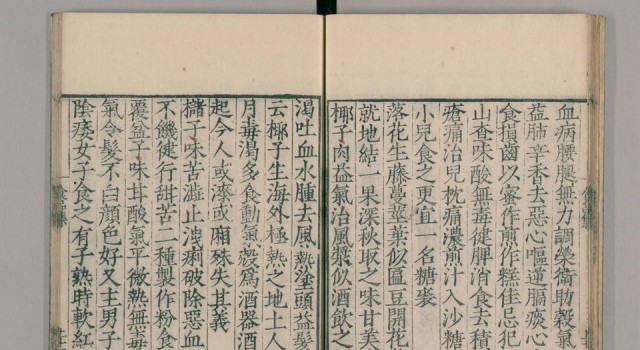 血病腰腿無力調榮衛助穀氣
益肺辛香去惡心嘔逆膈痰心
食損齒以蜜作煎作糕佳忌犯
山查味酸無毒健脾消食去積
瘡痛治兒枕痛濃煎汁入沙糖
小兒食之更宜一名糖
落花生藤蔓莖葉似匾豆開花
就地結一果深秋取之味甘美
椰子肉益氣治風漿似酒飲之
渴吐血水腫去風熱塗頭益髮
云椰子生海外極熱之地土人
月毒渴多食動氣殼爲酒器酒
起今人或漆或廂殊失其義
櫧子味苦澁止洩痢破除惡血
不饑健行甜苦二種製作粉食
覆盆子味甘酸氣平微熱無毒
氣令髮不白顏色好又主男子
陰痿女子食之有子熟時軟紅